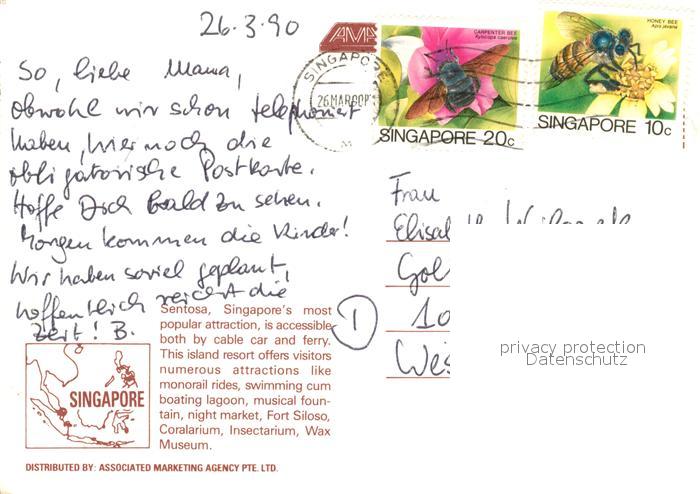 26.3.90
So, liebe Mama,
obwohl wir schon telephoniert
haben, hier noch die
obligatorische Postkarte.
Hoffe Dich bald zu sehen.
Morgen kommen die Kinder!
Wir haben soviel geplant,
hoffentlich reicht die
Zeit! B.
AMA
SINGAPORE
26MAR90
CARPENTER BEE
Xylocopa caerulea
SINGAPORE 20c
HONEY BEE
Apis javana
SINGAPORE 10c
Frau
Gol
10
Wes
privacy protection
Datenschutz
Sentosa, Singapore's most
popular attraction, is accessible
both by cable car and ferry.
This island resort offers visitors
numerous attractions like
monorail rides, swimming cum
boating lagoon, musical foun-
tain, night market, Fort Siloso,
Coralarium, Insectarium, Wax
Museum.
SINGAPORE
DISTRIBUTED BY: ASSOCIATED MARKETING AGENCY PTE. LTD.